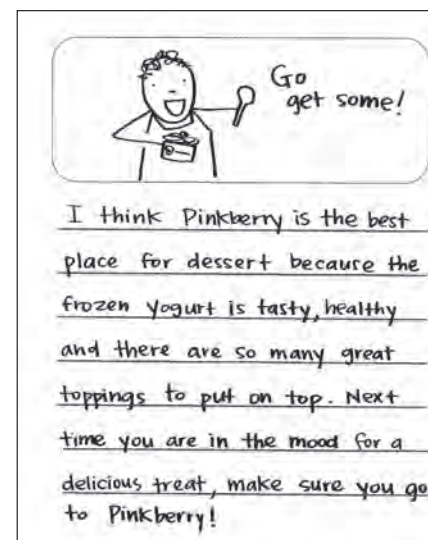 Go
get some!
I think Pinkberry is the best
place for dessert because the
frozen yogurt is tasty, healthy
and there are so many great
toppings to put on top. Next
time you are in the mood for a
delicious treat, make sure you go
to Pinkberry!